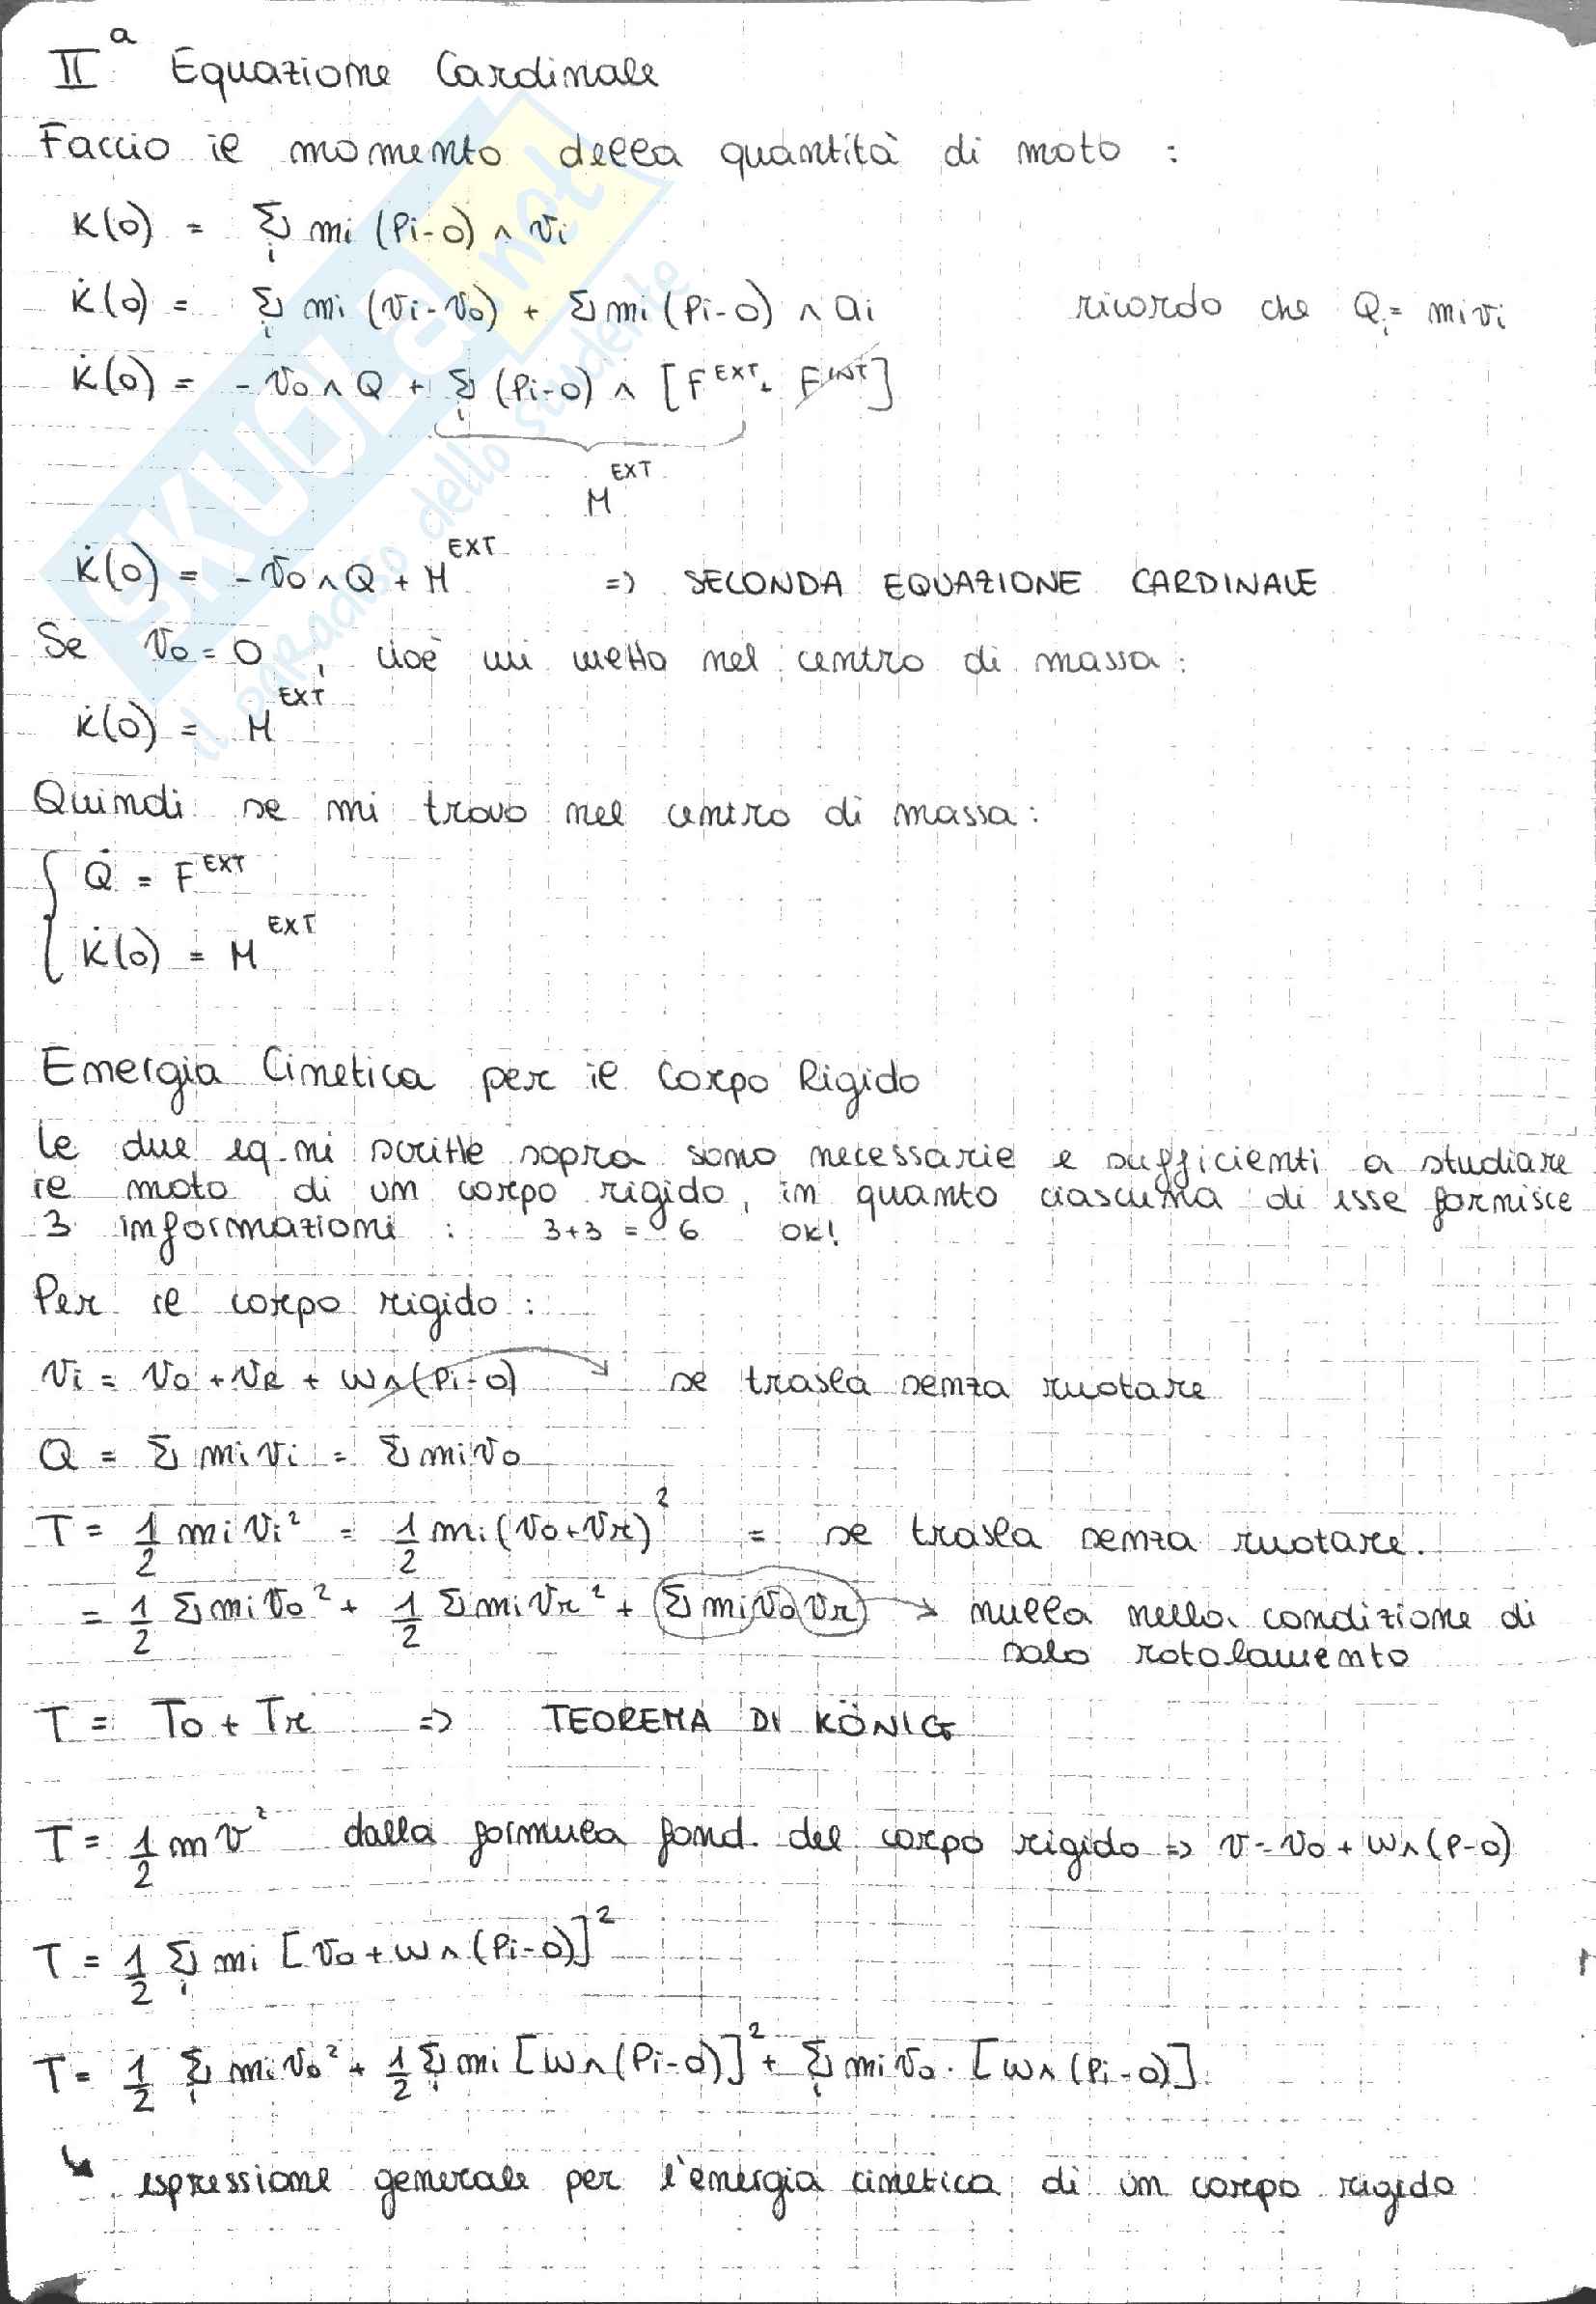 IIª Equazione Cardinale
Faccio il momento della quantità di moto :
K(o) = Σi mi (Pi-O) ∧ vi
K̇(o) = Σi mi (vi-vo) + Σ mi (Pi-O) ∧ ai ricordo che Qi = mivi
K̇(o) = - vo ∧ Q + Σi (Pi-O) ∧ [F^EXT + F^INT]
M^EXT
K̇(o) = - vo ∧ Q + M^EXT => SECONDA EQUAZIONE CARDINALE
Se vo = 0 , cioè mi metto nel centro di massa :
K̇(o) = M^EXT
Quindi se mi trovo nel centro di massa :
{ Q̇ = F^EXT
{ K̇(o) = M^EXT
Energia Cinetica per il Corpo Rigido
Le due eq.ni scritte sopra sono necessarie e sufficienti a studiare
il moto di un corpo rigido, in quanto ciascuna di esse fornisce
3 informazioni : 3+3 = 6 OK!
Per il corpo rigido :
vi = vo + vR + ω∧(Pi-O) → se trasla senza ruotare
Q = Σ mi vi = Σ mi vo
T = 1/2 mi vi² = 1/2 mi (vo+vr)² = se trasla senza ruotare.
= 1/2 Σ mi vo² + 1/2 Σ mi vr² + Σ mi vo vr → nulla nella condizione di
solo rotolamento
T = To + Tr => TEOREMA DI KÖNIG
T = 1/2 m v² dalla formula fond. del corpo rigido => v = vo + ω∧(P-O)
T = 1/2 Σi mi [vo + ω ∧ (Pi-O)]²
T = 1/2 Σi mi vo² + 1/2 Σi mi [ω∧(Pi-O)]² + Σi mi vo · [ω∧(Pi-O)]
↳ espressione generale per l'energia cinetica di un corpo rigido
SKUOLA.net
il paradiso dello studente